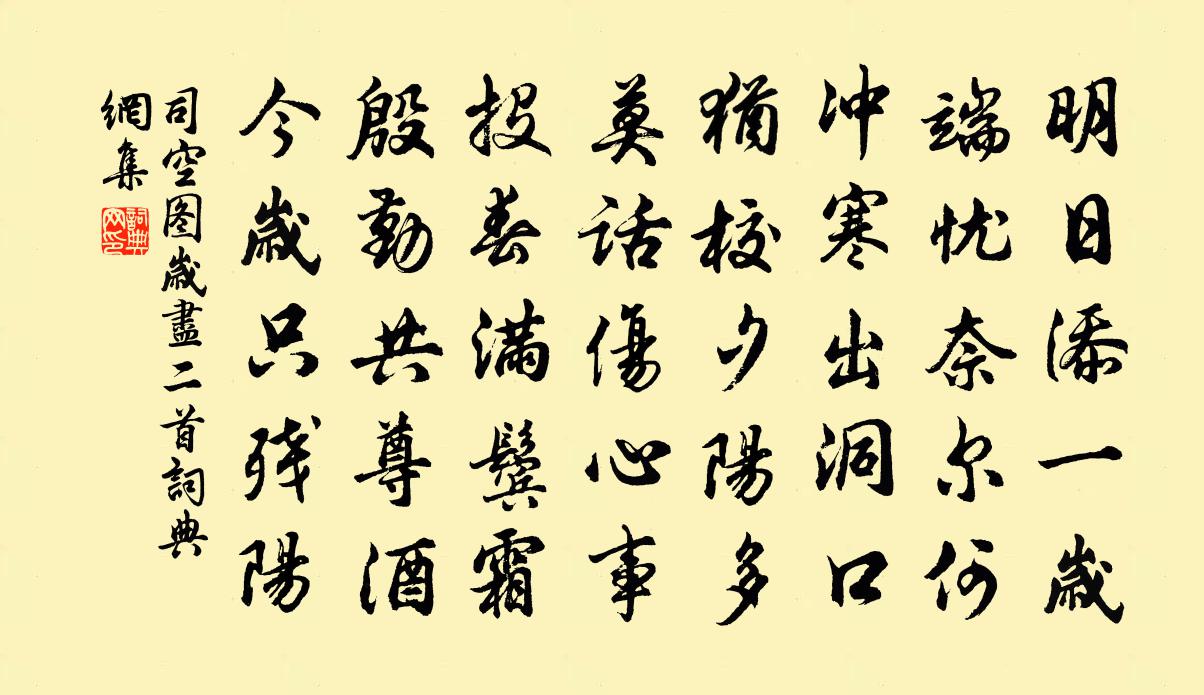 明日添一歲
端忧奈尔何
冲寒出洞口
猶校夕陽多
莫話傷心事
投春滿鬓霜
殷勤共尊酒
今歲只残陽
司空图歲盡二首詞典
網集
詞典网印